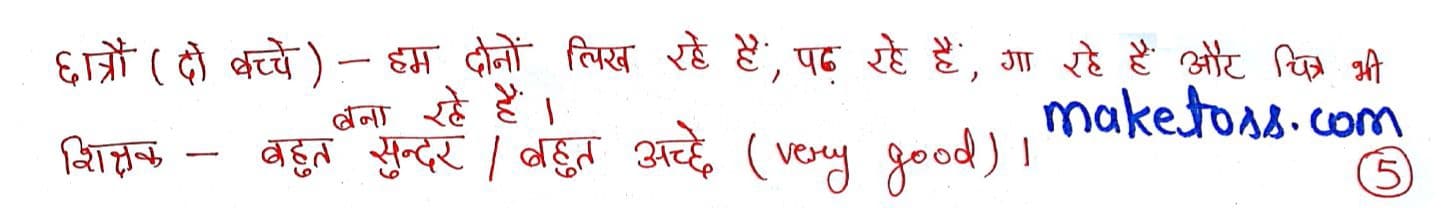 छात्रौ (दो बच्चे) – हम दोनों लिख रहे हैं, पढ़ रहे हैं, गा रहे हैं और चित्र भी
बना रहे हैं ।
maketoss.com
शिक्षक – बहुत सुन्दर / बहुत अच्छे (very good) ।
5